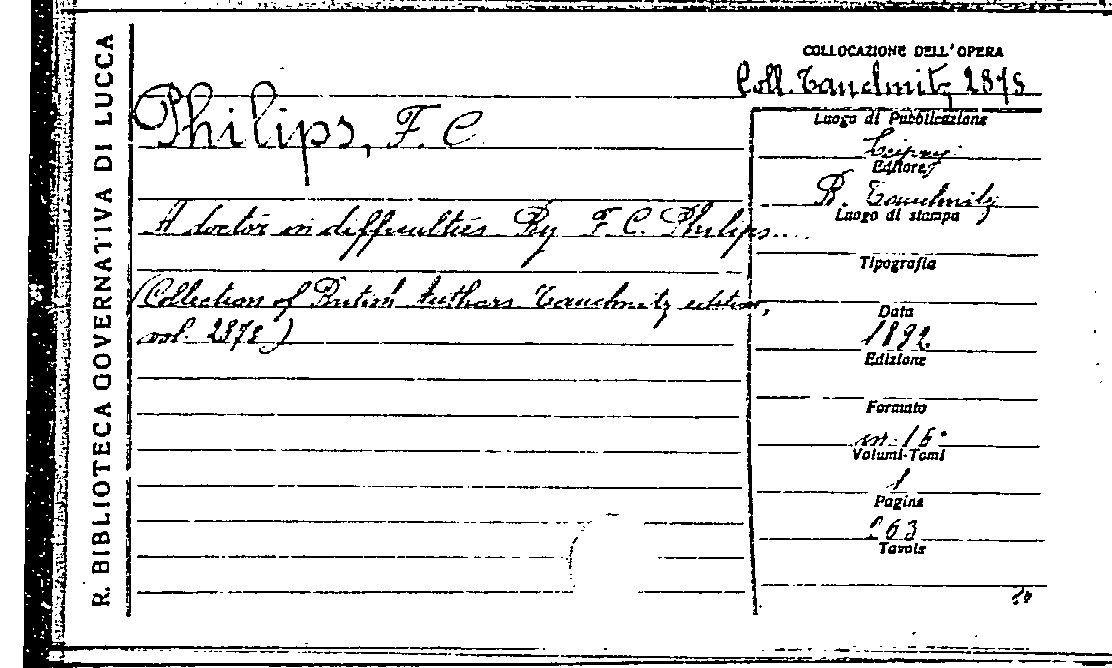 R. BIBLIOTECA GOVERNATIVA DI LUCCA
COLLOCAZIONE DELL'OPERA
Coll. Tauchnitz 2878
Philips, F. C.
A doctor in difficulties By F. C. Philips....
(Collection of British Authors Tauchnitz edition,
vol. 2878)
Luogo di Pubblicazione
Leipzig
Editore
B. Tauchnitz
Luogo di stampa
Tipografia
Data
1892
Edizione
Formato
in 16°
Volumi-Tomi
1
Pagine
263
Tavole